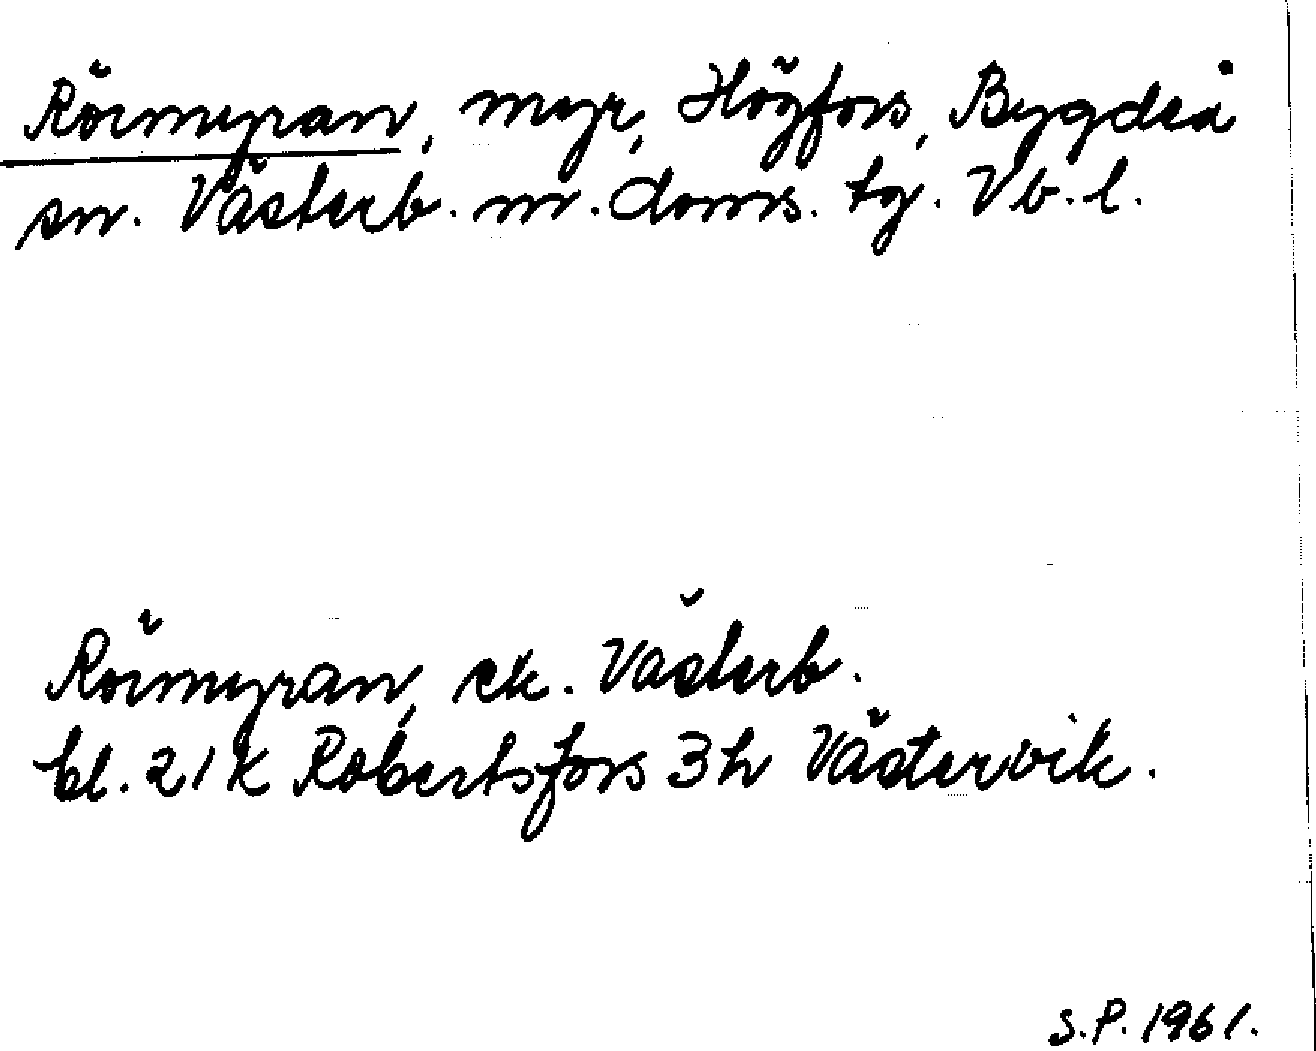 Rörmyran, myr, Högfors, Bygdeå
sn. Västerb. m. doms. tg. Vb. l.
Rörmyran, ek. Västerb.
bl. 21K Robertsfors 3h Västervik.
S.P. 1961.